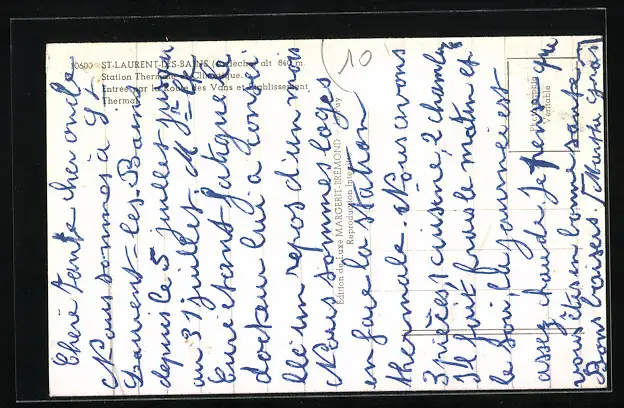 10600 ST-LAURENT-LES-BAINS (Ardèche) alt 840 m.
Station Thermale et Climatique.
Entrée par la Route des Vans et Etablissement
Thermal
Edition de Luxe MARGERIT-BRÉMOND
Reproduction Interdite
Photographie
Véritable
(10
Chère Tante cher oncle
Nous sommes à St-
Laurent-les-Bains
depuis le 5 juillet jusqu
au 31 juillet. M
étant fatigué le
docteur lui a conseil
llé un repos d'un mois
Nous sommes logés
en face la station
thermale. Nous avons
3 pièces, 1 cuisine, 2 chambres
Il fait frais le matin et
le soir, la journée est
assez chaude. Je pense que
vous êtes en bonne santé.
Bons baisers.